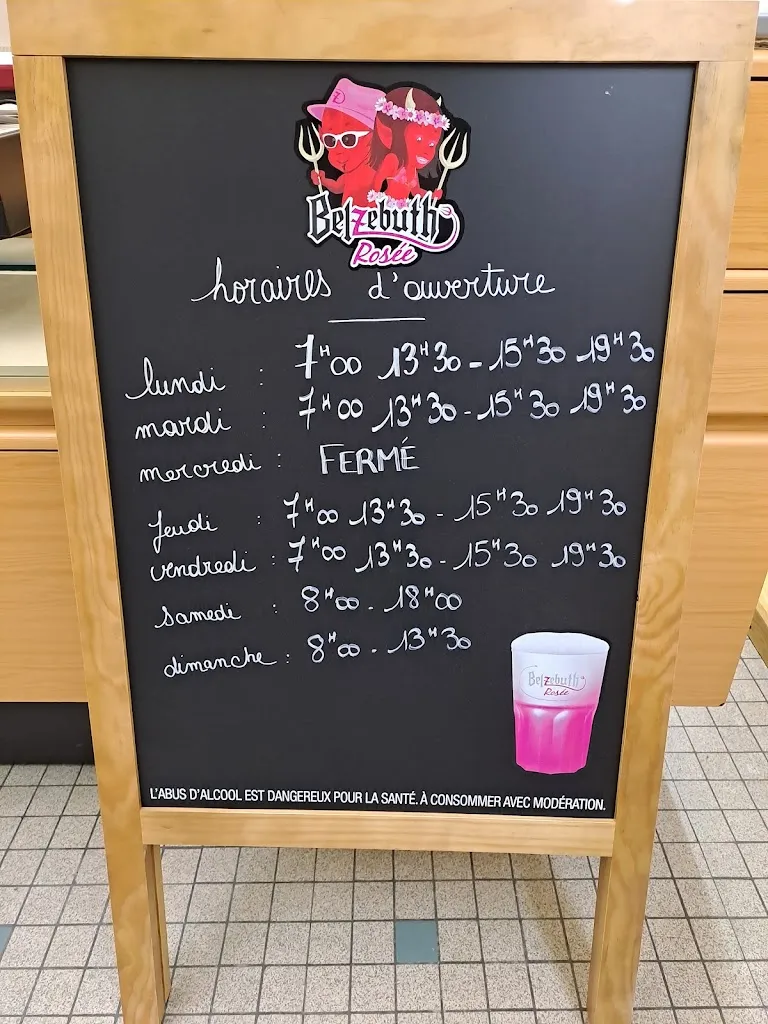 Belzebuth
Rosée
horaires d'ouverture
lundi : 7H00 13H30 - 15H30 19H30
mardi : 7H00 13H30 - 15H30 19H30
mercredi : FERMÉ
jeudi : 7H00 13H30 - 15H30 19H30
vendredi : 7H00 13H30 - 15H30 19H30
samedi : 8H00 - 18H00
dimanche : 8H00 - 13H30
Belzebuth
Rosée
L'ABUS D'ALCOOL EST DANGEREUX POUR LA SANTÉ. À CONSOMMER AVEC MODÉRATION.